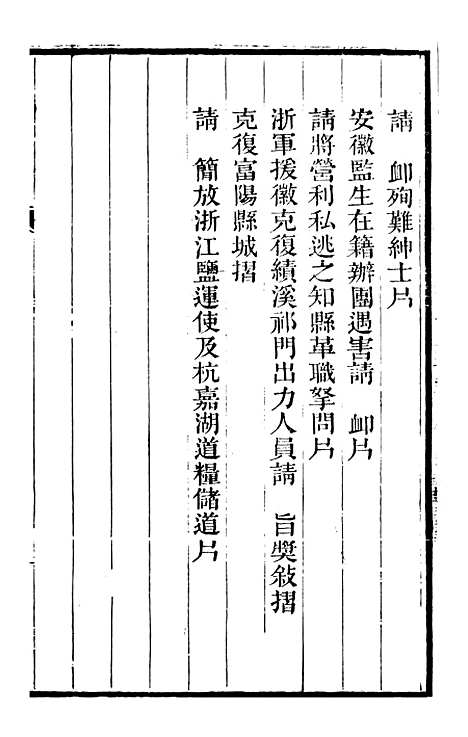 請　卹殉難紳士片
安徽監生在籍辦團遇害請　卹片
請將營利私逃之知縣革職拏問片
浙軍援徽克復績溪祁門出力人員請　旨獎敍摺
克復富陽縣城摺
請　簡放浙江鹽運使及杭嘉湖道糧儲道片